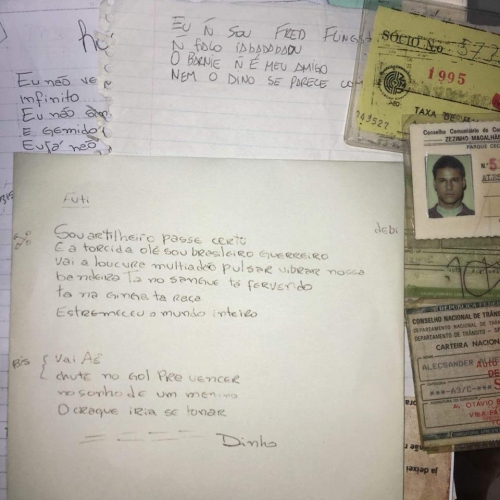 EU Ñ SOU FRED FLINGS
Ñ FALO IABADABADOU
O BARNIE Ñ É MEU AMIGO
NEM O DINO SE PARECE COM
Eu não ve
infinito
Eu não
E gemido
Eu já não
SÓCIO N.o 577
1995
TAXA DE
743527
Conselho Comunitário de
ZEZINHO MAGALHÃ
PARQUE CEC
N.o 5
ALES
Futi
debi
Sou artilheiro passe certo
E a torcida olé sou brasileiro guerreiro
Vai a loucura multidão pulsar vibrar nossa
bandeira Ta no sangue tá fervendo
ta na ginga ta raça
Estremeceu o mundo inteiro
Bis
Vai Aê
chute no gol Pre vencer
no sonho de um menino
O craque iria se tonar
Dinho
CONSELHO NACIONAL DE TRÂNS
DEPARTAMENTO NACIONAL DE TRÂNSITO
DEPARTAMENTO DE TRÂNSITO - SP
CARTEIRA NACIONAL
ALECSANDER ALVE
AUTO
***-A3/C-***
AL OTÁVIO B
ja deixei